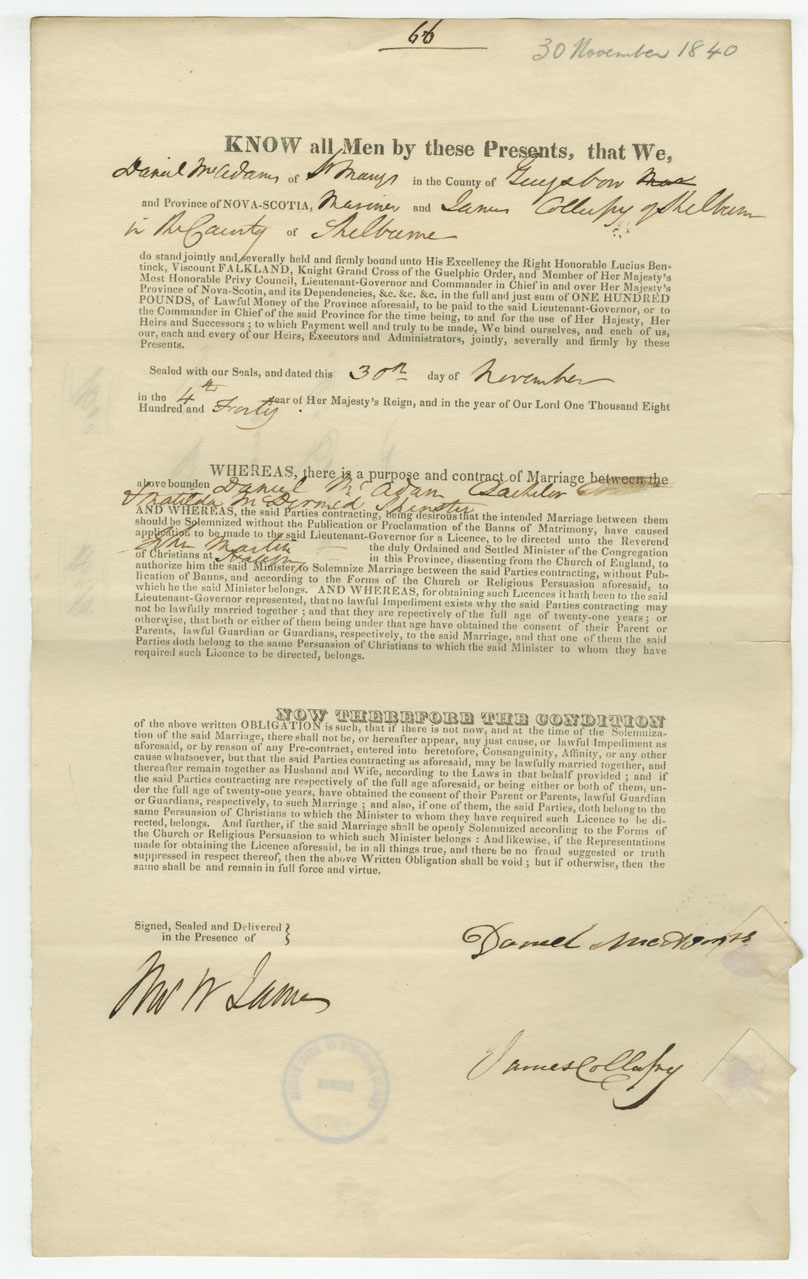 66
30 November 1840
KNOW all Men by these Presents, that We,
Daniel McAdams of St Marys in the County of Guysboro
and Province of NOVA-SCOTIA, Mariner and James Collupy of Shelburn
in the County of Shelburne
do stand jointly and severally held and firmly bound unto His Excellency the Right Honorable Lucius Ben-
tinck, Viscount FALKLAND, Knight Grand Cross of the Guelphic Order, and Member of Her Majesty's
Most Honorable Privy Council, Lieutenant-Governor and Commander in Chief in and over Her Majesty's
Province of Nova-Scotia, and its Dependencies, &c. &c. &c. in the full and just sum of ONE HUNDRED
POUNDS, of Lawful Money of the Province aforesaid, to be paid to the said Lieutenant-Governor, or to
the Commander in Chief of the said Province for the time being, to and for the use of Her Hajesty, Her
Heirs and Successors; to which Payment well and truly to be made, We bind ourselves, and each of us,
our, each and every of our Heirs, Executors and Administrators, jointly, severally and firmly by these
Presents.
Sealed with our Seals, and dated this 30th day of November
in the 4th year of Her Majesty's Reign, and in the year of Our Lord One Thousand Eight
Hundred and Forty.
WHEREAS, there is a purpose and contract of Marriage between the
above bounden Daniel McAdam Bachelor
& Matilda McDermed Spinster
AND WHEREAS, the said Parties contracting, being desirous that the intended Marriage between them
should be Solemnized without the Publication or Proclamation of the Banns of Matrimony, have caused
application to be made to the said Lieutenant-Governor for a Licence, to be directed unto the Reverend
John Martin the duly Ordained and Settled Minister of the Congregation
of Christians at Halifax in this Province, dissenting from the Church of England, to
authorize him the said Minister, to Solemnize Marriage between the said Parties contracting, without Pub-
lication of Banns, and according to the Forms of the Church or Religious Persuasion aforesaid, to
which he the said Minister belongs. AND WHEREAS, for obtaining such Licences it hath been to the said
Lieutenant-Governor represented, that no lawful Impediment exists why the said Parties contracting may
not be lawfully married together; and that they are repectively of the full age of twenty-one years; or
otherwise, that both or either of them being under that age have obtained the consent of their Parent or
Parents, lawful Guardian or Guardians, respectively, to the said Marriage, and that one of them the said
Parties doth belong to the same Persuasion of Christians to which the said Minister to whom they have
required such Licence to be directed, belongs.
NOW THEREFORE THE CONDITION
of the above written OBLIGATION is such, that if there is not now, and at the time of the Solemniza-
tion of the said Marriage, there shall not be, or hereafter appear, any just cause, or lawful Impediment as
aforesaid, or by reason of any Pre-contract, entered into heretofore, Consanguinity, Affinity, or any other
cause whatsoever, but that the said Parties contracting as aforesaid, may be lawfully married together, and
thereafter remain together as Husband and Wife, according to the Laws in that behalf provided; and if
the said Parties contracting are respectively of the full age aforesaid, or being either or both of them, un-
der the full age of twenty-one years, have obtained the consent of their Parent or Parents, lawful Guardian
or Guardians, respectively, to such Marriage; and also, if one of them, the said Parties, doth belong to the
same Persuasion of Christians to which the Minister to whom they have required such Licence to be di-
rected, belongs. And further, if the said Marriage shall be openly Solemnized according to the Forms of
the Church or Religious Persuasion to which such Minister belongs: And likewise, if the Representations
made for obtaining the Licence aforesaid, be in all things true, and there be no fraud suggested or truth
suppressed in respect thereof, then the above Written Obligation shall be void; but if otherwise, then the
same shall be and remain in full force and virtue.
Signed, Sealed and Delivered
in the Presence of
Daniel McAdams
W James
James Collupy